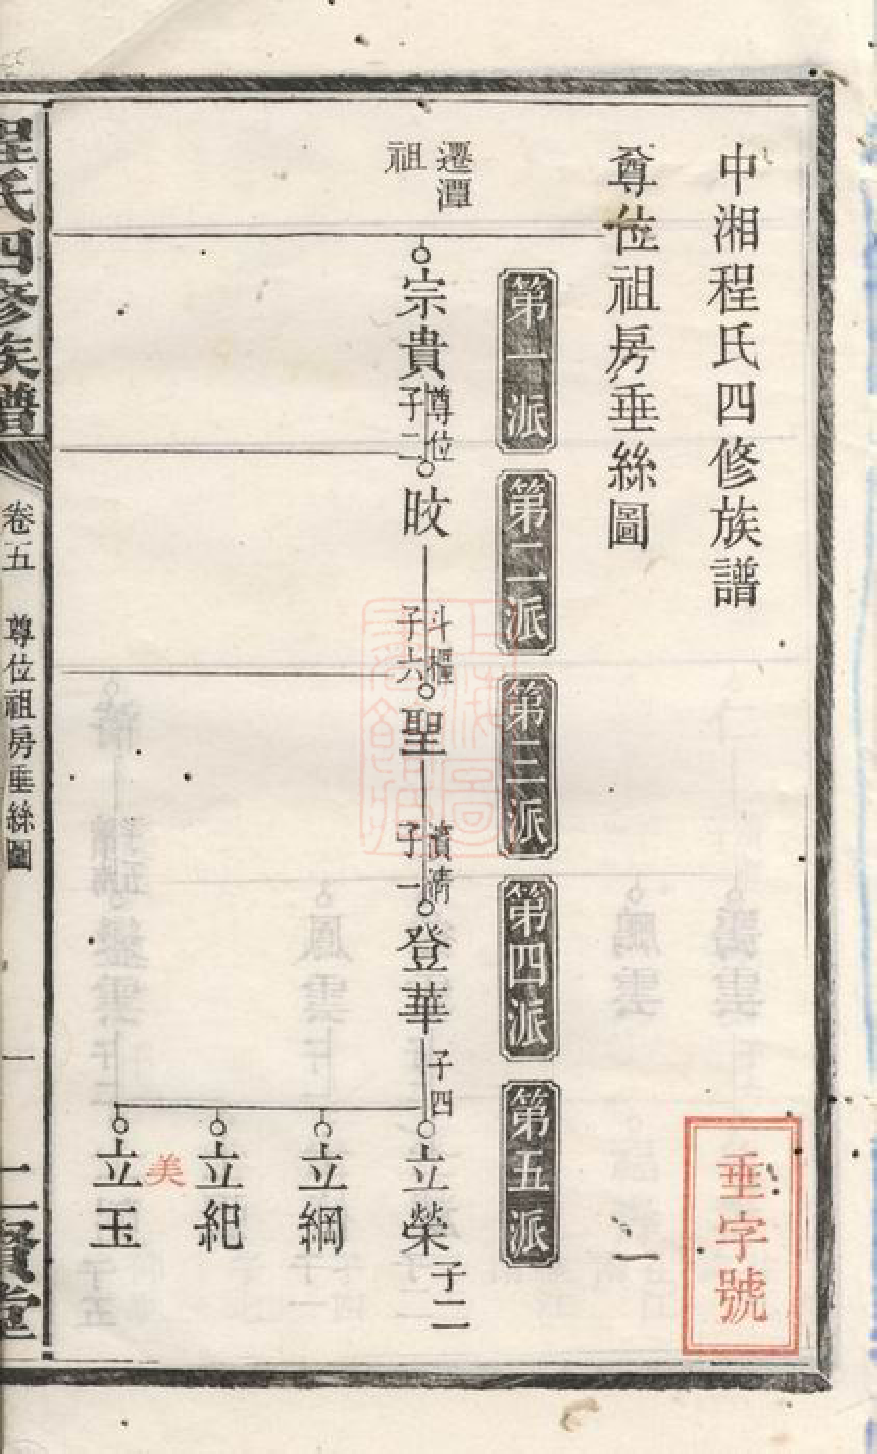 中湘程氏四修族譜
垂字號
尊位祖房垂絲圖
一
第一派
第二派
第三派
第四派
第五派
遷潭
祖
宗貴
尊位
子二
旼
斗樞
子六
聖
資清
子一
登華
子四
立榮
子二
立綱
立紀
美
立玉
程氏四修族譜
卷五
尊位祖房垂絲圖
一
二賢堂